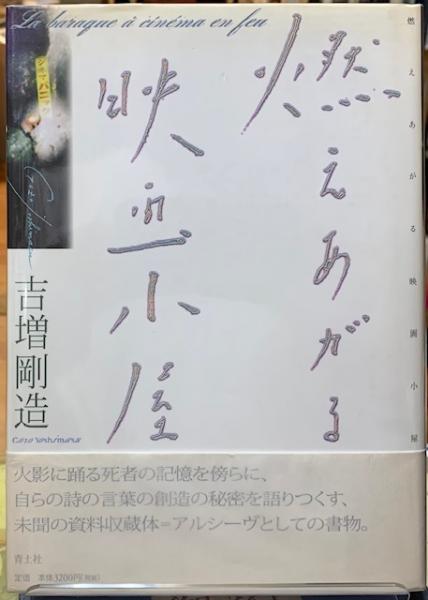 La baraque à cinéma en feu
燃えあがる
映画小屋
燃えあがる映画小屋
Gozo Yoshimasu
吉増剛造
Gozo Yoshimasu
火影に踊る死者の記憶を傍らに、
自らの詩の言葉の創造の秘密を語りつくす、
未聞の資料収蔵体=アルシーヴとしての書物。
青土社
定価 本体3200円(税別)